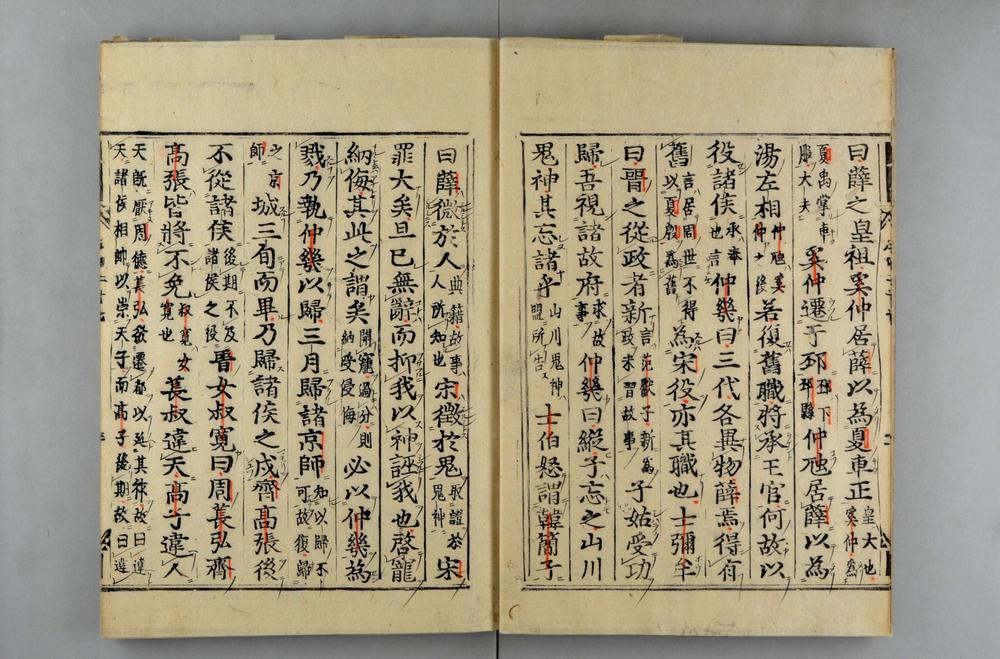 曰薛之皇祖奚仲居薛以為夏車正皇大也奚仲為
夏禹掌車服大夫奚仲遷于邳邳下邳縣仲虺居薛以為
湯左相仲虺奚仲之後若復舊職將承王官何故以
役諸侯承奉也言仲幾曰三代各異物薛焉得有
舊言居周世不得以夏殷為舊為宋役亦其職也士彌牟
曰晋之從政者新言范獻子新為政未習故事子姑受功
歸吾視諸故府求故事仲幾曰縱子忘之山川
鬼神其忘諸乎山川鬼神盟所告士伯怒謂韓簡子
曰薛徵於人典籍故事人所知也宋徵於鬼取證於鬼神宋
罪大矣且已無辭而抑我以神誣我也啓寵
納侮其此之謂矣開寵過分則納受侵侮必以仲幾為
戮乃執仲幾以歸三月歸諸京師知以歸不可故復歸
之京師城三旬而畢乃歸諸侯之戍齊高張後
不從諸侯後期不及諸侯之役晉女叔寬曰周萇弘齊
高張皆將不免叔寬女寬也萇叔違天高子違人
天既厭周德萇弘欲遷都以延其祚故曰違天諸侯相帥以崇天子而高子後期故曰違